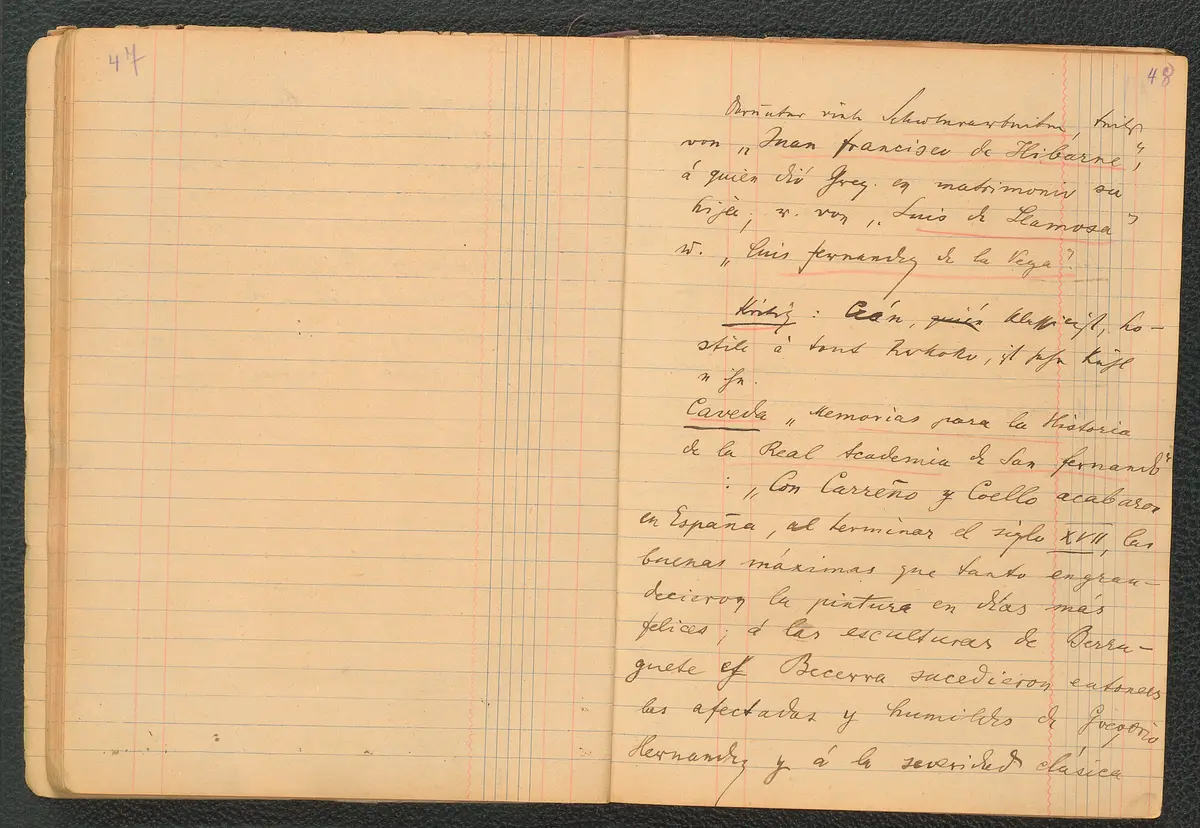 47
48
Darunter viele Schülerarbeiten, teils
von „Juan Francisco de Hibarne",
á quien dió Greg. en matrimonio su
hija, u. von „Luis de Llamosa"
u. „Luis Fernandez de la Vega".
Kritik: Ceán, quién Klassicist, ho-
stile à tout Rokoko, ist sehr kühl
Caveda „Memorias para la Historia
de la Real Academia de San Fernando"
: „Con Carreño y Coello acabaron
en España, al terminar el siglo XVII, las
buenas máximas que tanto engran-
decieron la pintura en días más
felices; á las esculturas de Berru-
guete y Becerra sucedieron entonces
las afectadas y humildes de Gregorio
Hernandez y á la severidad clásica